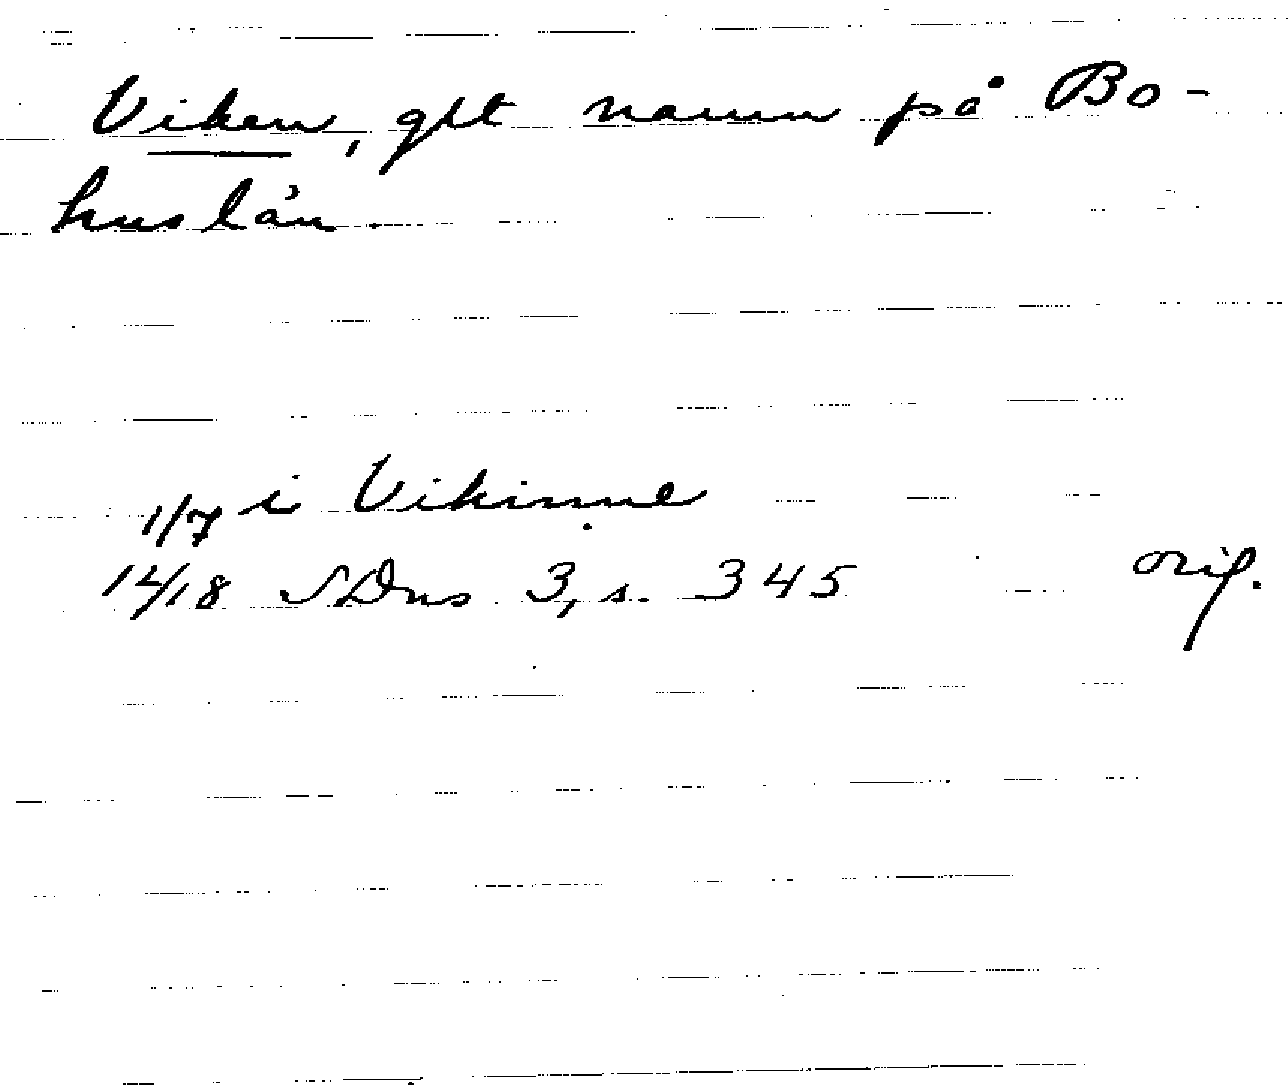 Viken, glt namn på Bo-
huslän.
1/7 i Vikinne
14/18 SDns 3, s. 345 orig.